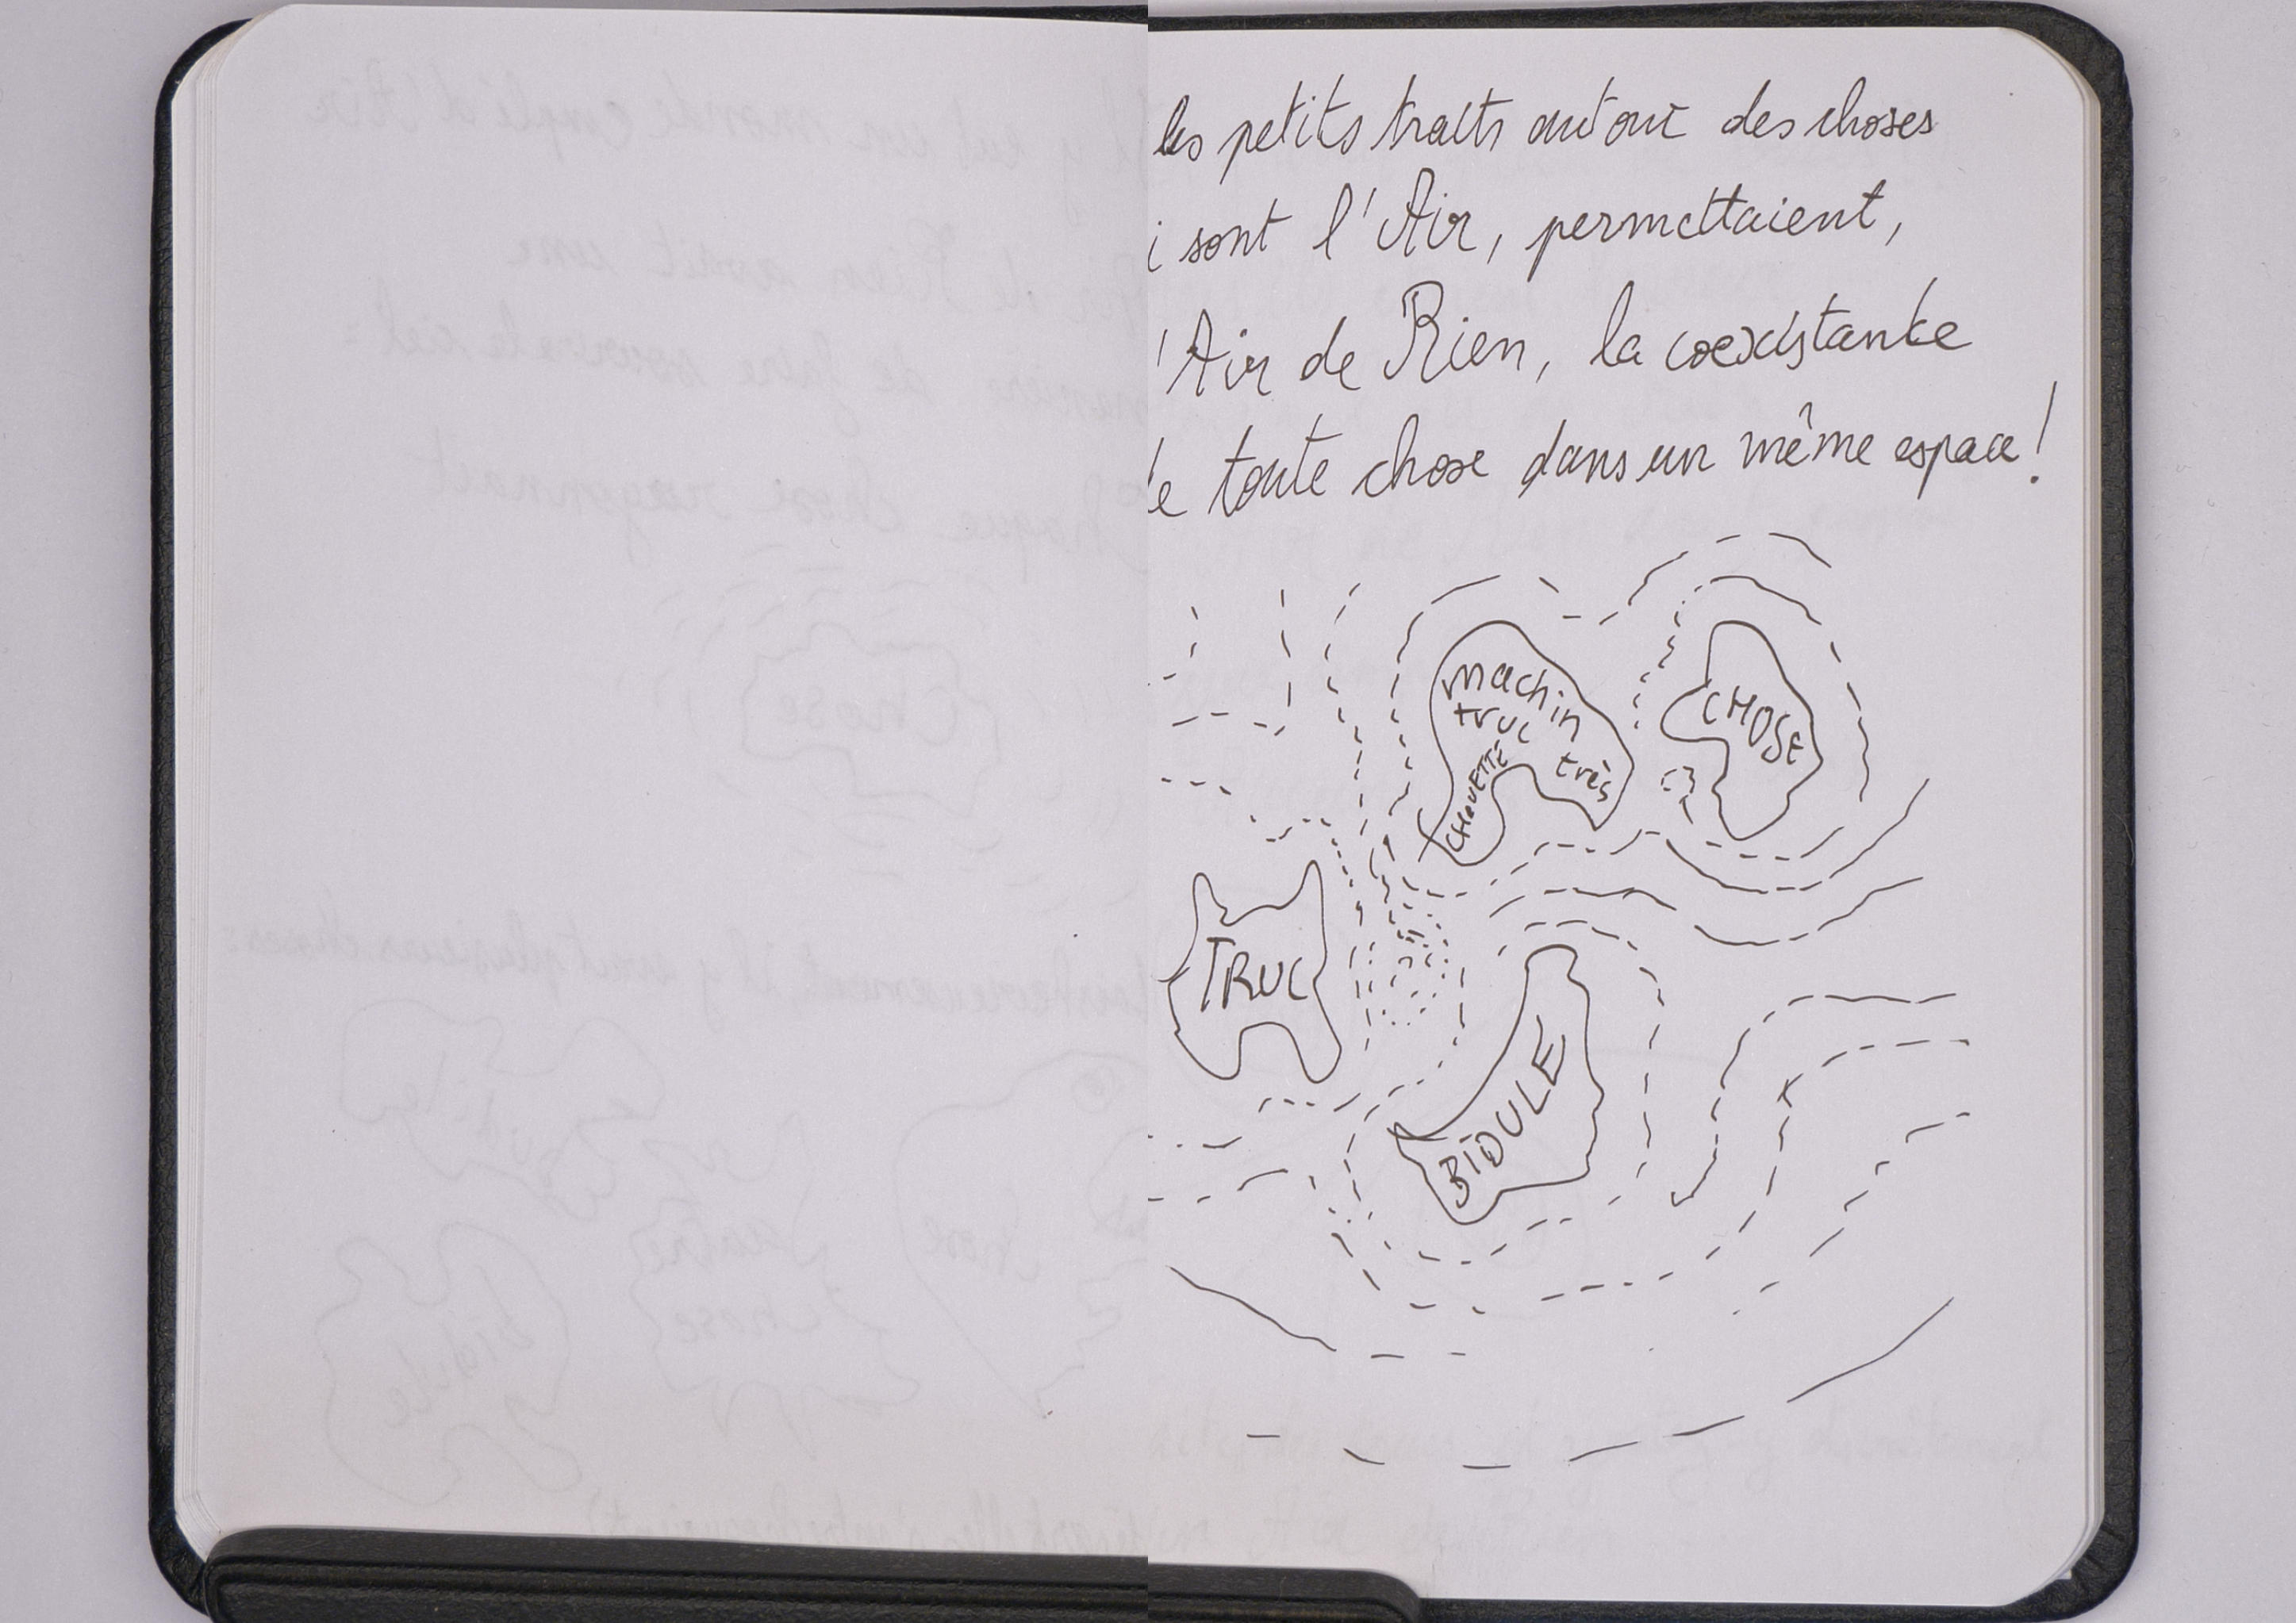 les petits traits autour des choses
i sont l'Air, permettaient,
'Air de Rien, la coexistante
de toute chose dans un même espace!
machin
truc
très
CHOUETTE
CHOSE
TRUC
BIDULE